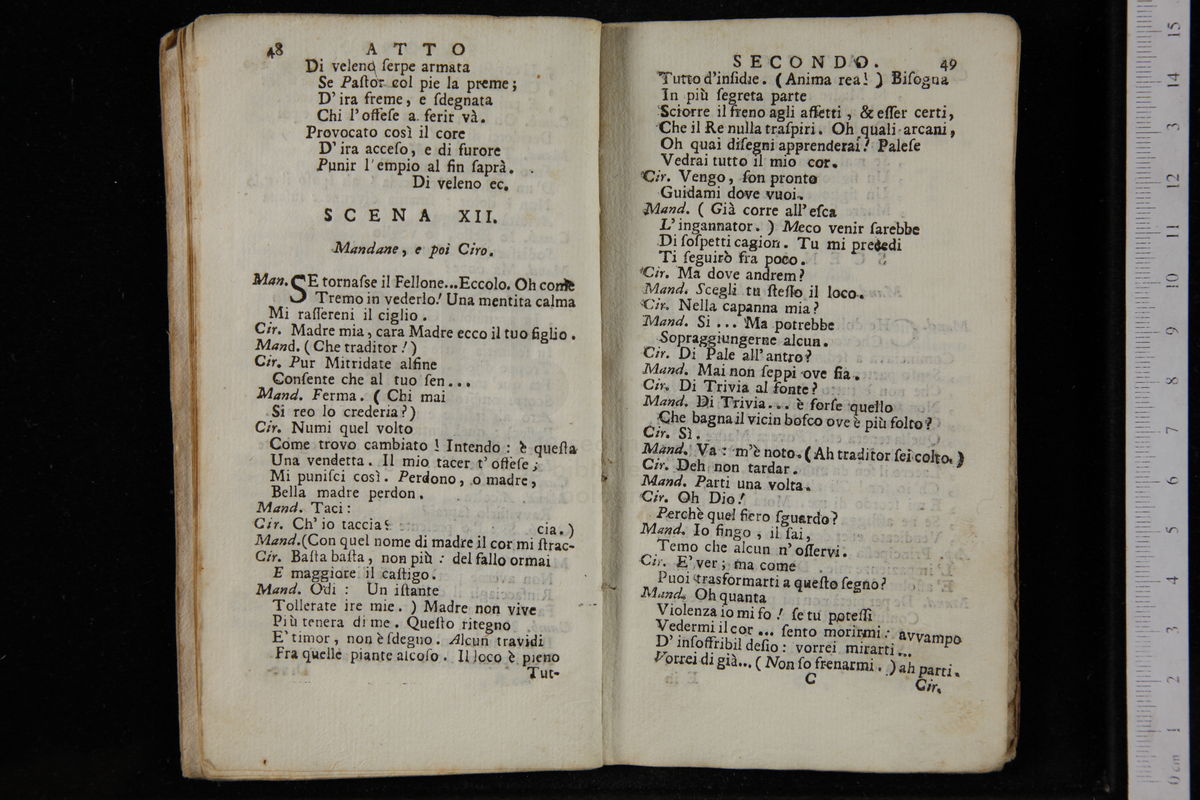 48 ATTO
Di veleno ſerpe armata
Se Paſtor col pie la preme;
D'ira freme, e ſdegnata
Chi l'offeſe a ferir và.
Provocato così il core
D'ira acceſo, e di furore
Punir l'empio al fin ſaprà.
Di veleno ec.
SCENA XII.
Mandane, e poi Ciro.
Man. SE tornaſse il Fellone...Eccolo. Oh come
Tremo in vederlo! Una mentita calma
Mi raſſereni il ciglio.
Cir. Madre mia, cara Madre ecco il tuo figlio.
Mand. (Che traditor!)
Cir. Pur Mitridate alfine
Conſente che al tuo ſen...
Mand. Ferma. (Chi mai
Sì reo lo crederia?)
Cir. Numi quel volto
Come trovo cambiato! Intendo: è queſta
Una vendetta. Il mio tacer t'offeſe;
Mi puniſci così. Perdono, o madre,
Bella madre perdon.
Mand. Taci:
Cir. Ch'io taccia? cia.)
Mand.(Con quel nome di madre il cor mi ſtrac-
Cir. Baſta baſta, non più: del fallo ormai
E maggiore il caſtigo.
Mand. Odi: Un iſtante
Tollerate ire mie.) Madre non vive
Più tenera di me. Queſto ritegno
E' timor, non è ſdegno. Alcun travidi
Fra quelle piante aſcoſo. Il loco è pieno
Tut-
SECONDO. 49
Tutto d'inſidie. (Anima rea!) Biſogna
In più ſegreta parte
Sciorre il freno agli affetti, & eſſer certi,
Che il Re nulla traſpiri. Oh quali arcani,
Oh quai diſegni apprenderai! Paleſe
Vedrai tutto il mio cor.
Cir. Vengo, ſon pronto
Guidami dove vuoi.
Mand. (Già corre all'eſca
L'ingannator.) Meco venir ſarebbe
Di ſoſpetti cagion. Tu mi precedi
Ti ſeguirò fra poco.
Cir. Ma dove andrem?
Mand. Scegli tu ſteſſo il loco.
Cir. Nella capanna mia?
Mand. Si... Ma potrebbe
Sopraggiungerne alcun.
Cir. Di Pale all'antro?
Mand. Mai non ſeppi ove ſia.
Cir. Di Trivia al fonte?
Mand. Di Trivia... è forſe quello
Che bagna il vicin boſco ove è più folto?
Cir. Sì.
Mand. Va: m'è noto. (Ah traditor ſei colto.)
Cir. Deh non tardar.
Mand. Parti una volta.
Cir. Oh Dio!
Perchè quel fiero ſguardo?
Mand. Io fingo, il ſai,
Temo che alcun n'oſſervi.
Cir. E' ver; ma come
Puoi trasformarti a queſto ſegno?
Mand. Oh quanta
Violenza io mi fo! ſe tu poteſſi
Vedermi il cor... ſento morirmi: avvampo
D'inſoffribil deſio: vorrei mirarti...
Vorrei di già... (Non ſo frenarmi.) ah parti.
C Cir.
0 cm 1 2 3 4 5 6 7 8 9 10 11 12 13 14 15